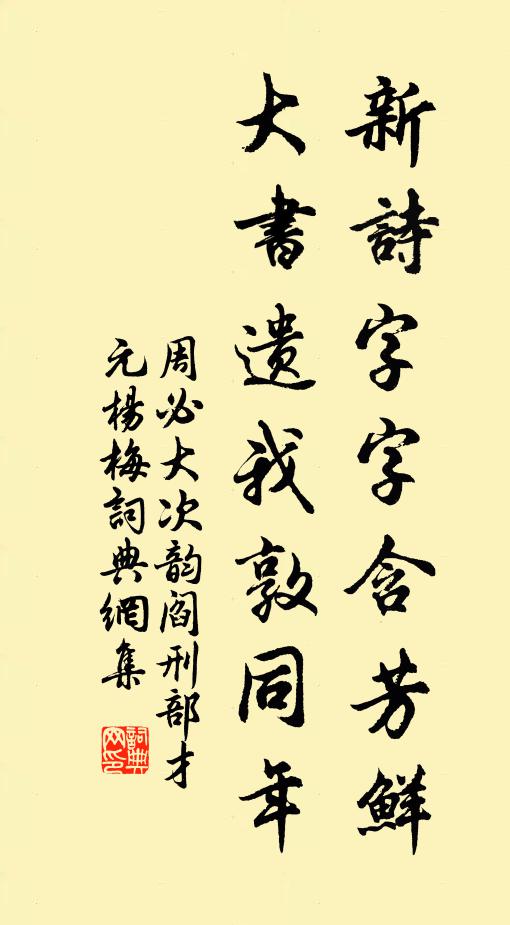 新詩字字含芳鮮
大書遺我敦同年
周必大次韵閻刑部才
元楊梅詞典網集
詞典网印